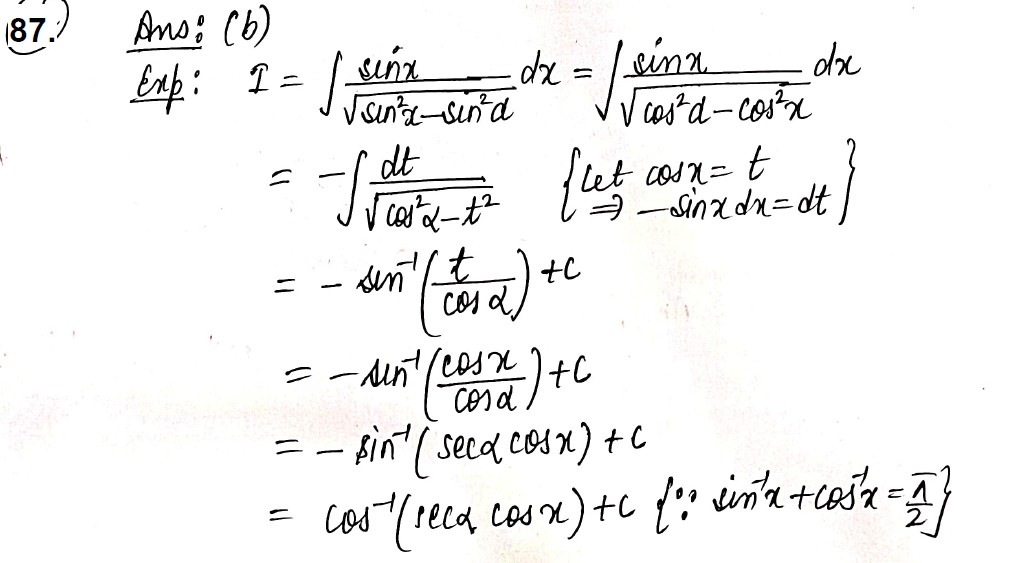 87. Ans: (b)
Exp: I = ∫ sinx/√(sin²x–sin²α) dx = ∫ sinx/√(cos²α–cos²x) dx
= –∫ dt/√(cos²α–t²) {Let cosx = t ⇒ –sinx dx = dt}
= – sin⁻¹(t/cosα) + C
= – sin⁻¹(cosx/cosα) + C
= – sin⁻¹(secα cosx) + C
= cos⁻¹(secα cosx) + C {∵ sin⁻¹x + cos⁻¹x = π/2}